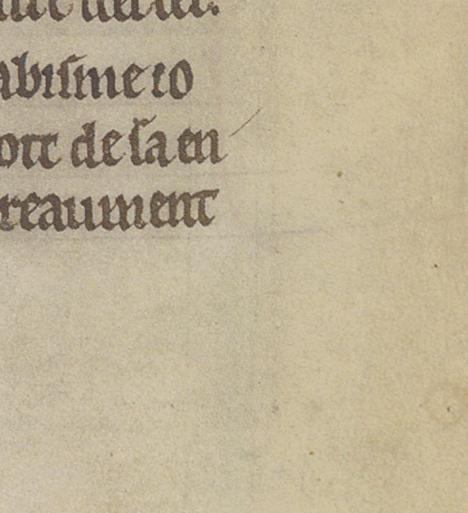 abisme to
ort de sa en
reaument